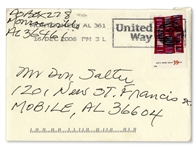 Box 278
Monroeville
AL 36461
AL 361
16 DEC 2006 PM 3 L
United
Way
39
Mr Don Salter
1201 New St. Francis St
MOBILE, AL 36604